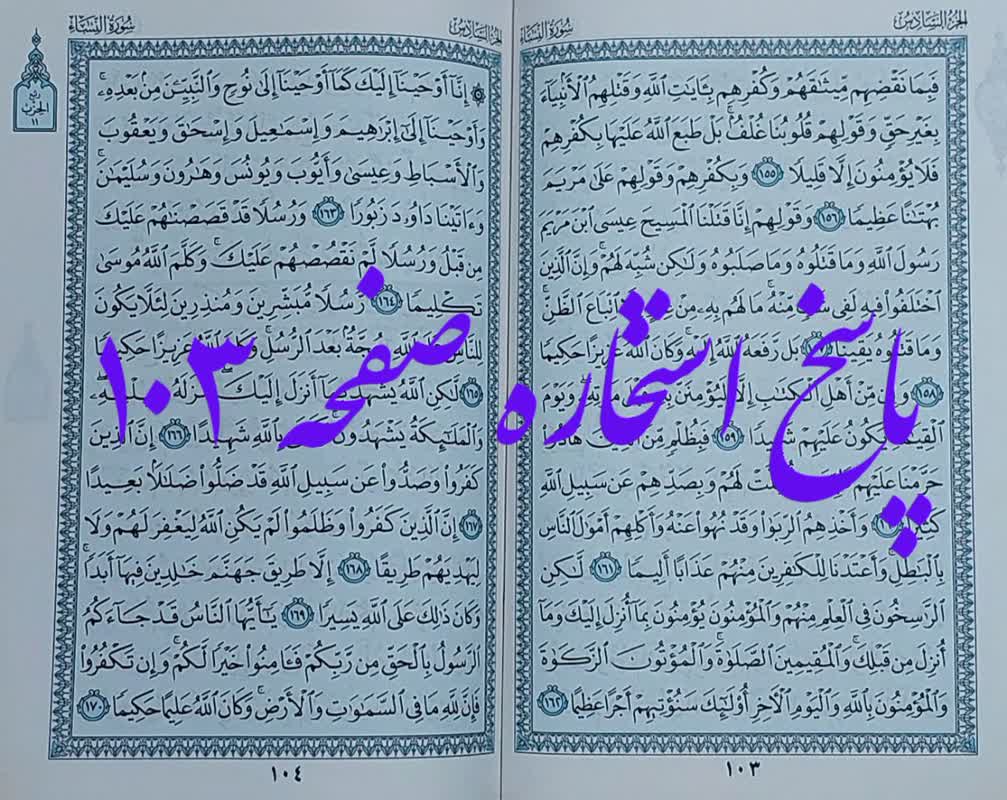 الجزء السادس
سورة النساء
فَبِمَا نَقْضِهِم مِّيثَٰقَهُمْ وَكُفْرِهِم بِـَٔايَٰتِ ٱللَّهِ وَقَتْلِهِمُ ٱلْأَنۢبِيَآءَ
بِغَيْرِ حَقٍّ وَقَوْلِهِمْ قُلُوبُنَا غُلْفٌۢ بَلْ طَبَعَ ٱللَّهُ عَلَيْهَا بِكُفْرِهِمْ
فَلَا يُؤْمِنُونَ إِلَّا قَلِيلًا ١٥٥ وَبِكُفْرِهِمْ وَقَوْلِهِمْ عَلَىٰ مَرْيَمَ
بُهْتَٰنًا عَظِيمًا ١٥٦ وَقَوْلِهِمْ إِنَّا قَتَلْنَا ٱلْمَسِيحَ عِيسَى ٱبْنَ مَرْيَمَ
رَسُولَ ٱللَّهِ وَمَا قَتَلُوهُ وَمَا صَلَبُوهُ وَلَٰكِن شُبِّهَ لَهُمْ ۚ وَإِنَّ ٱلَّذِينَ
ٱخْتَلَفُوا۟ فِيهِ لَفِى شَكٍّ مِّنْهُ ۚ مَا لَهُم بِهِۦ مِنْ ٱتِّبَاعَ ٱلظَّنِّ ۚ
وَمَا قَتَلُوهُ يَقِينًۢا ١٥٧ بَل رَّفَعَهُ ٱللَّهُ إِلَيْهِ ۚ وَكَانَ ٱللَّهُ عَزِيزًا حَكِيمًا
١٥٨ وَإِن مِّنْ أَهْلِ ٱلْكِتَٰبِ إِلَّا لَيُؤْمِنَنَّ بِهِۦ قَبْلَ مَوْتِهِۦ ۖ وَيَوْمَ
ٱلْقِيَٰمَةِ يَكُونُ عَلَيْهِمْ شَهِيدًا ١٥٩ فَبِظُلْمٍ مِّنَ ٱلَّذِينَ هَادُوا۟
حَرَّمْنَا عَلَيْهِمْ طَيِّبَٰتٍ أُحِلَّتْ لَهُمْ وَبِصَدِّهِمْ عَن سَبِيلِ ٱللَّهِ
كَثِيرًا ١٦٠ وَأَخْذِهِمُ ٱلرِّبَوٰا۟ وَقَدْ نُهُوا۟ عَنْهُ وَأَكْلِهِمْ أَمْوَٰلَ ٱلنَّاسِ
بِٱلْبَٰطِلِ ۚ وَأَعْتَدْنَا لِلْكَٰفِرِينَ مِنْهُمْ عَذَابًا أَلِيمًا ١٦١ لَّٰكِنِ
ٱلرَّٰسِخُونَ فِى ٱلْعِلْمِ مِنْهُمْ وَٱلْمُؤْمِنُونَ يُؤْمِنُونَ بِمَآ أُنزِلَ إِلَيْكَ وَمَآ
أُنزِلَ مِن قَبْلِكَ ۚ وَٱلْمُقِيمِينَ ٱلصَّلَوٰةَ ۚ وَٱلْمُؤْتُونَ ٱلزَّكَوٰةَ
وَٱلْمُؤْمِنُونَ بِٱللَّهِ وَٱلْيَوْمِ ٱلْءَاخِرِ أُو۟لَٰٓئِكَ سَنُؤْتِيهِمْ أَجْرًا عَظِيمًا ١٦٢
١٠٣
الجزء السادس
سورة النساء
ربع
الحزب
١١
۞ إِنَّآ أَوْحَيْنَآ إِلَيْكَ كَمَآ أَوْحَيْنَآ إِلَىٰ نُوحٍ وَٱلنَّبِيِّـۧنَ مِنۢ بَعْدِهِۦ ۚ
وَأَوْحَيْنَآ إِلَىٰٓ إِبْرَٰهِيمَ وَإِسْمَٰعِيلَ وَإِسْحَٰقَ وَيَعْقُوبَ
وَٱلْأَسْبَاطِ وَعِيسَىٰ وَأَيُّوبَ وَيُونُسَ وَهَٰرُونَ وَسُلَيْمَٰنَ ۚ
وَءَاتَيْنَا دَاوُۥدَ زَبُورًا ١٦٣ وَرُسُلًا قَدْ قَصَصْنَٰهُمْ عَلَيْكَ
مِن قَبْلُ وَرُسُلًا لَّمْ نَقْصُصْهُمْ عَلَيْكَ ۚ وَكَلَّمَ ٱللَّهُ مُوسَىٰ
تَكْلِيمًا ١٦٤ رُّسُلًا مُّبَشِّرِينَ وَمُنذِرِينَ لِئَلَّا يَكُونَ
لِلنَّاسِ عَلَى ٱللَّهِ حُجَّةٌۢ بَعْدَ ٱلرُّسُلِ ۚ وَكَانَ ٱللَّهُ عَزِيزًا حَكِيمًا
١٦٥ لَّٰكِنِ ٱللَّهُ يَشْهَدُ بِمَآ أَنزَلَ إِلَيْكَ ۖ أَنزَلَهُۥ بِعِلْمِهِۦ ۖ
وَٱلْمَلَٰٓئِكَةُ يَشْهَدُونَ ۚ وَكَفَىٰ بِٱللَّهِ شَهِيدًا ١٦٦ إِنَّ ٱلَّذِينَ
كَفَرُوا۟ وَصَدُّوا۟ عَن سَبِيلِ ٱللَّهِ قَدْ ضَلُّوا۟ ضَلَٰلًۢا بَعِيدًا
١٦٧ إِنَّ ٱلَّذِينَ كَفَرُوا۟ وَظَلَمُوا۟ لَمْ يَكُنِ ٱللَّهُ لِيَغْفِرَ لَهُمْ وَلَا
لِيَهْدِيَهُمْ طَرِيقًا ١٦٨ إِلَّا طَرِيقَ جَهَنَّمَ خَٰلِدِينَ فِيهَآ أَبَدًا ۚ
وَكَانَ ذَٰلِكَ عَلَى ٱللَّهِ يَسِيرًا ١٦٩ يَٰٓأَيُّهَا ٱلنَّاسُ قَدْ جَآءَكُمُ
ٱلرَّسُولُ بِٱلْحَقِّ مِن رَّبِّكُمْ فَـَٔامِنُوا۟ خَيْرًا لَّكُمْ ۚ وَإِن تَكْفُرُوا۟
فَإِنَّ لِلَّهِ مَا فِى ٱلسَّمَٰوَٰتِ وَٱلْأَرْضِ ۚ وَكَانَ ٱللَّهُ عَلِيمًا حَكِيمًا ١٧٠
١٠٤
پاسخ استخاره صفحه ۱۰۳